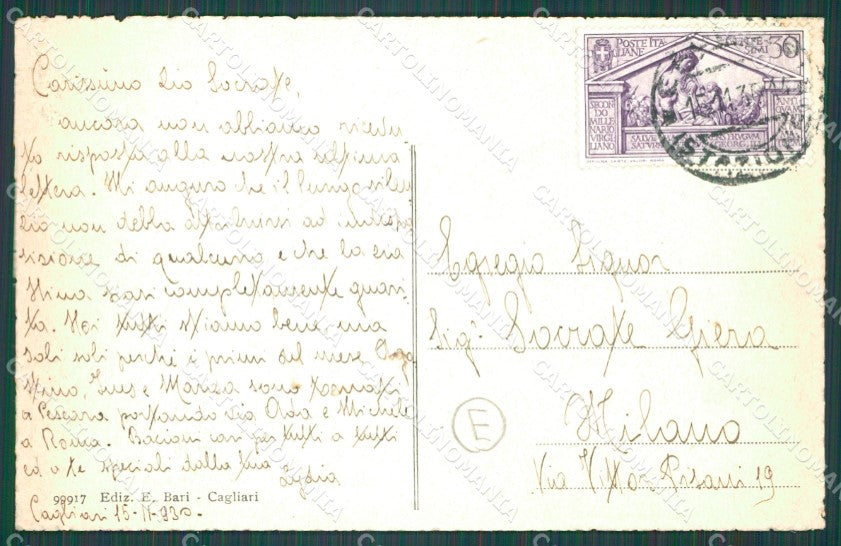 Carissimo zio Socrate,
ancora non abbiamo ricevu-
ta risposta alla nostra ultima
lettera. Mi auguro che il lungo silen
zio non debba attribuirsi ad indispo
sizione di qualcuno e che la zia
Mima sia completamente guari-
ta. Noi tutti stiamo bene, ma
soli soli perché i primi del mese
Ines e Marisa sono tornati
a Pescara portando zia Ada e Michele
a Roma. Bacioni cari per tutti a tutti
ed a te speciali dalla tua
Lydia
99917 Ediz. E. Bari - Cagliari
Cagliari 15-11-930-
POSTE ITA
LIANE
30
SECON
DO MILLE
NARIO VIRGI
LIANO
SALVE
SATVRN
Egregio Signor
Sig. Socrate Giera
Milano
Via Vittor Pisani 19
E
CARTOLINOMANIA